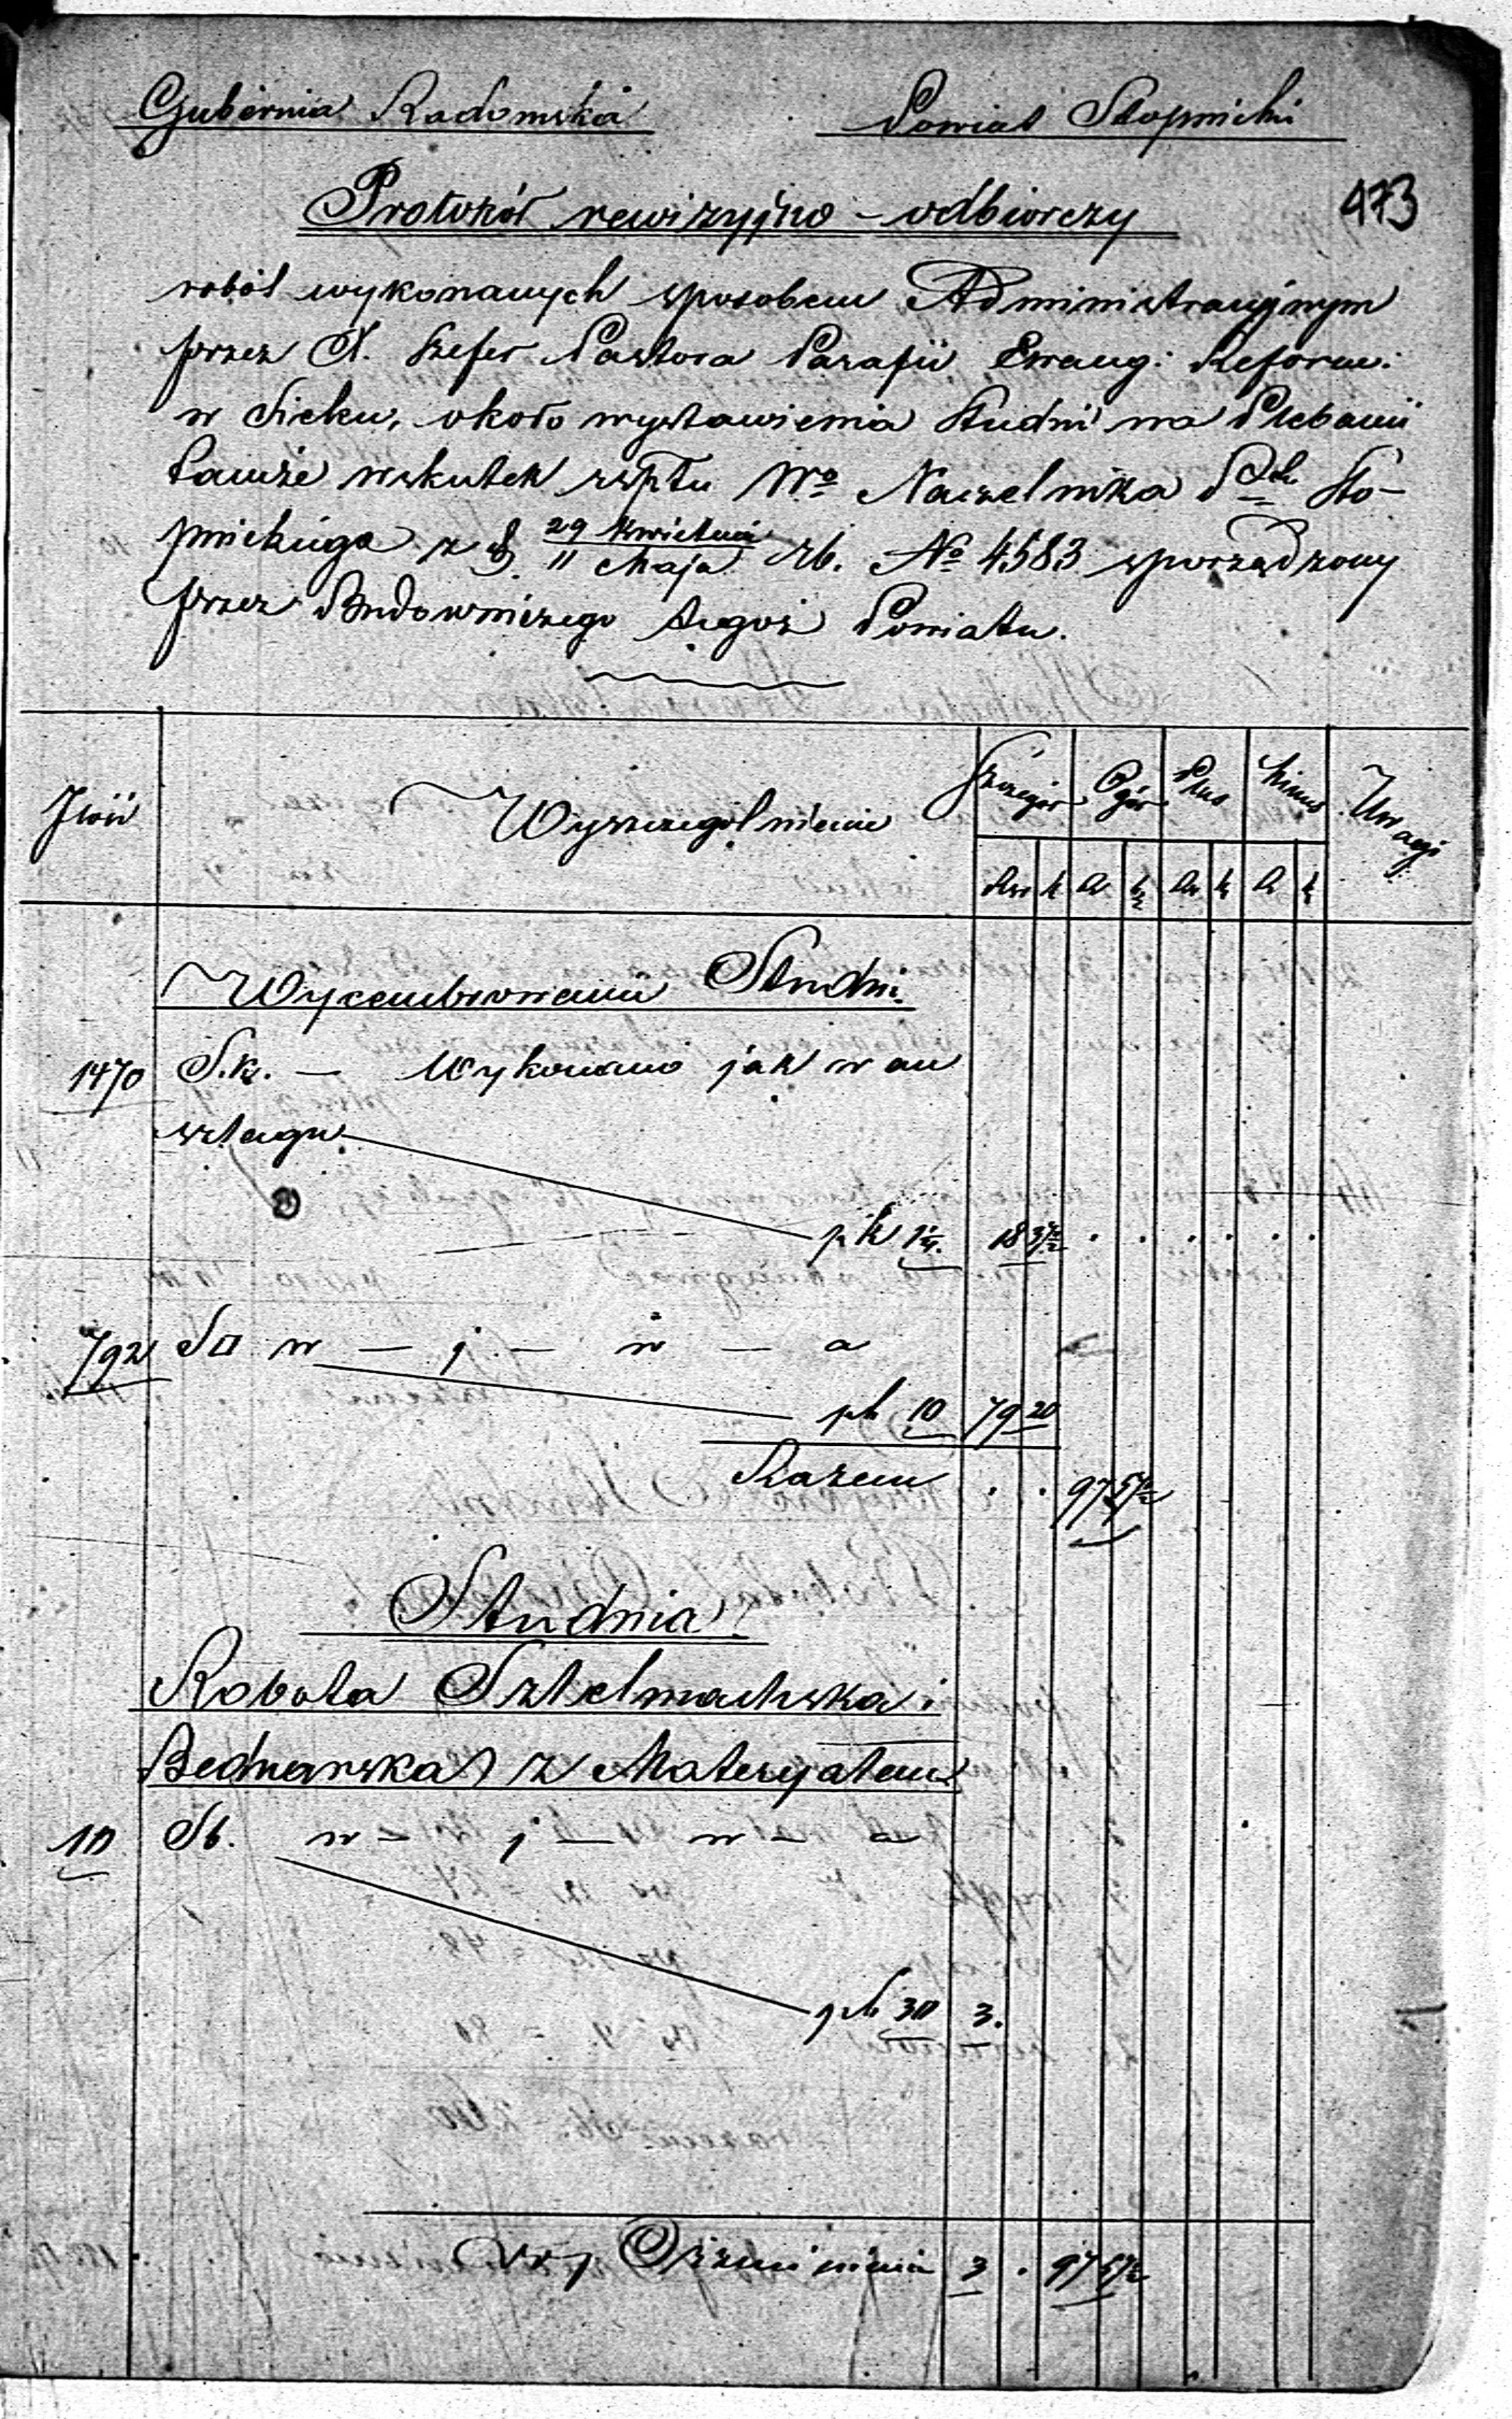 Gubernia Radomska Powiat Stopnicki
473
Protokół rewizyjno - odbiorczy
robót wykonanych sposobem Administracyjnym
przez X. Szefer Pastora Parafii Ewang: Reform:
w Sielcu, około wystawienia Studni na Plebanii
tamże wskutek rsptu Wo Naczelnika Ptu Sto-
pnickiego z d. 29 Kwietnia / 11 Maja rb. No 4583 sporządzony
przez Budowniczego tegoż Powiatu.
Ilość Wyszczególnienie Szczegół Ogół Plus Minus Uwagi
Rsr k R k Rr k R k
Wycembrowanie Studni
1470 S.k. — Wykonano jak w an
szlagu
p k 1¼. 18 37½
792 S□ w — j — w — a
pk 10 79 20
Razem 97 57½
Studnia
Robota Sztelmachska i
Bednarska z Materyałem
10 St. w — j — w — a
pk 30 3.
Do Przeniesienia 3 . 97 57½